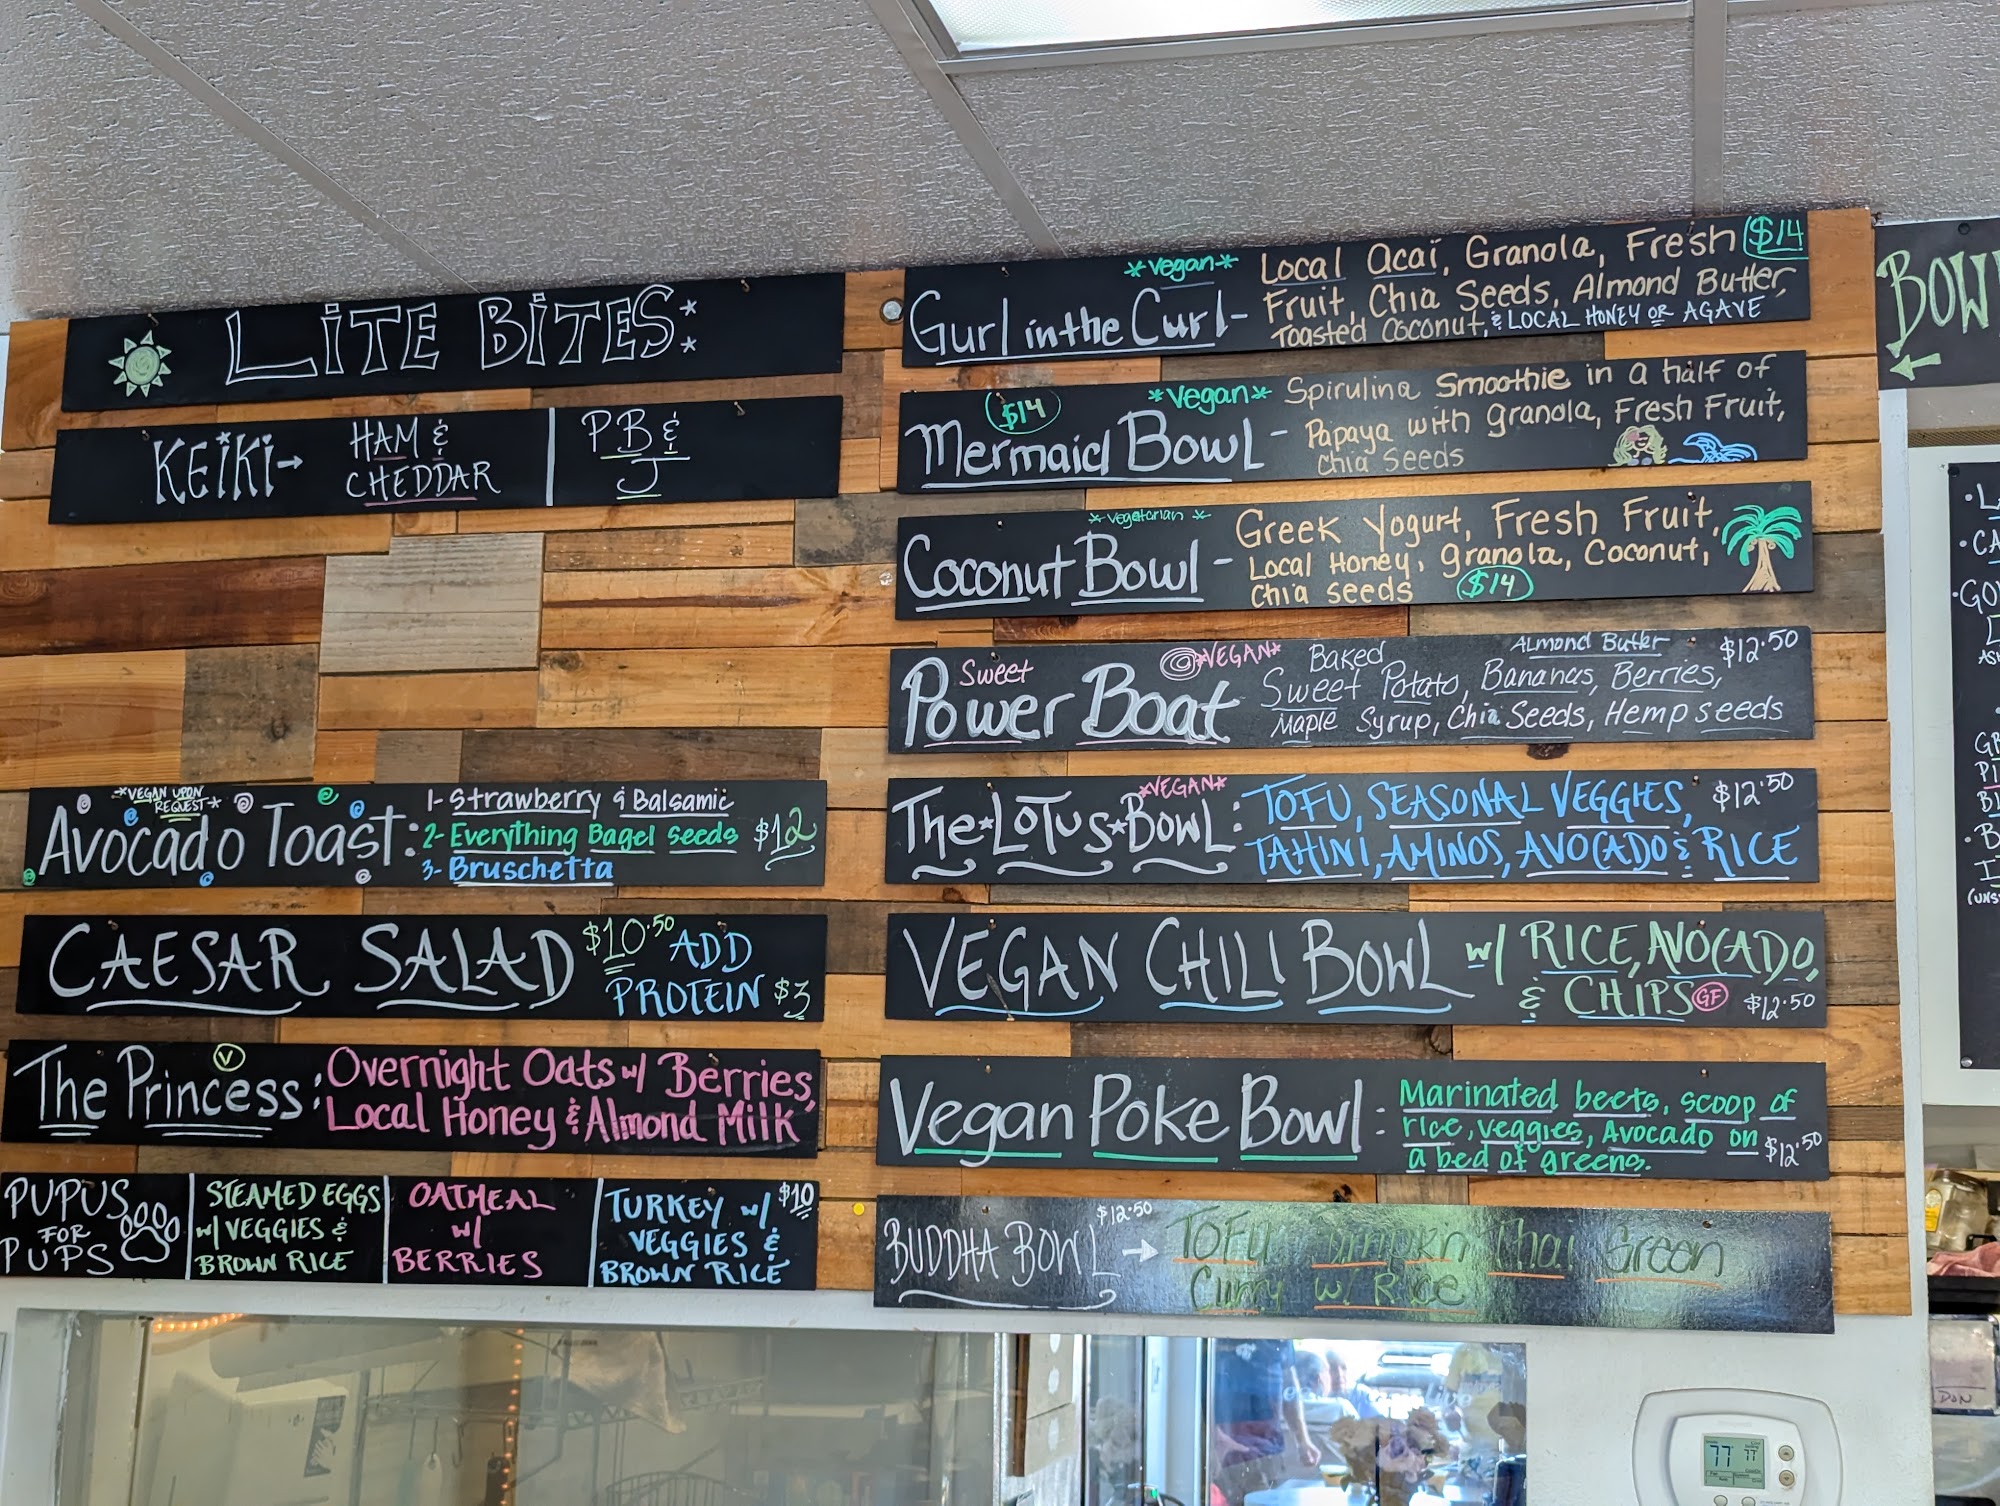 LiTE BiTES:
KEiKi→
HAM &
CHEDDAR
PB &
J
*VEGAN UPON
REQUEST*
Avocado Toast:
1- Strawberry & Balsamic
2- Everything Bagel Seeds
3- Bruschetta
$12
CAESAR SALAD
$10.50
ADD
PROTEIN $3
The Princess:
V
Overnight Oats w/ Berries,
Local Honey & Almond Milk
PUPUS
FOR
PUPS
STEAMED EGGS
w/ VEGGIES &
BROWN RICE
OATMEAL
w/
BERRIES
TURKEY w/
VEGGIES &
BROWN RICE
$10
*vegan*
Gurl in the Curl-
Local Acaí, Granola, Fresh
Fruit, Chia Seeds, Almond Butter,
Toasted Coconut, & LOCAL HONEY OR AGAVE
$14
$14
*Vegan*
Mermaid Bowl -
Spirulina Smoothie in a half of
Papaya with granola, Fresh Fruit,
Chia Seeds
*vegetarian*
Coconut Bowl -
Greek Yogurt, Fresh Fruit,
Local Honey, granola, Coconut,
Chia seeds
$14
Sweet
*VEGAN*
Power Boat
Baked
Almond Butter
$12.50
Sweet Potato, Bananas, Berries,
Maple Syrup, Chia Seeds, Hemp seeds
*VEGAN*
The*LoTus*Bowl:
TOFU, SEASONAL VEGGIES,
TAHINI, AMINOS, AVOCADO & RICE
$12.50
VEGAN CHILI BOWL
w/ RICE, AVOCADO,
& CHIPS
GF
$12.50
Vegan Poke Bowl:
Marinated beets, scoop of
rice, veggies, Avocado on
a bed of greens.
$12.50
BUDDHA BOWL→
$12.50
TOFU Pumpkn Thai Green
Curry w. Rice
BOW
77
77